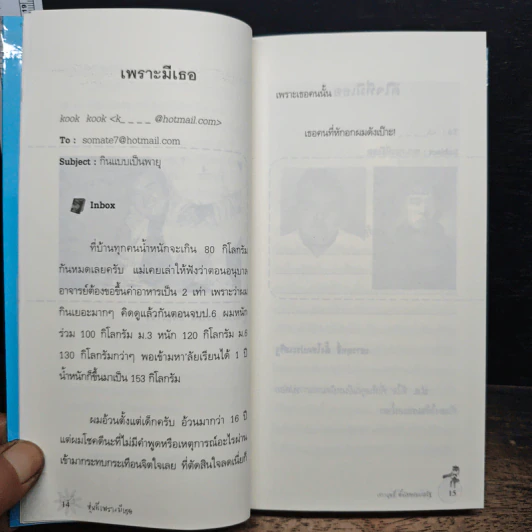 เพราะมีเธอ
kook kook <k_ _ _ _ @hotmail.com>
To : somate7@hotmail.com
Subject : กินแบบเป็นพายุ
Inbox
ที่บ้านทุกคนน้ำหนักจะเกิน 80 กิโลกรัม
กันหมดเลยครับ แม่เคยเล่าให้ฟังว่าตอนอนุบาล
อาจารย์ต้องขอขึ้นค่าอาหารเป็น 2 เท่า เพราะว่าผม
กินเยอะมากๆ คิดดูแล้วกันตอนจบป.6 ผมหนัก
ร่วม 100 กิโลกรัม ม.3 หนัก 120 กิโลกรัม ม.6
130 กิโลกรัมกว่าๆ พอเข้ามหา'ลัยเรียนได้ 1 ปี
น้ำหนักก็ขึ้นมาเป็น 153 กิโลกรัม
ผมอ้วนตั้งแต่เด็กครับ อ้วนมากว่า 16 ปี
แต่ผมโชคดีนะที่ไม่มีคำพูดหรือเหตุการณ์อะไรผ่าน
เข้ามากระทบกระเทือนจิตใจเลย ที่ตัดสินใจลดเนี่ยก็
14
เพราะเธอคนนั้น
เธอคนที่หักอกผมดังเป๊าะ!
15